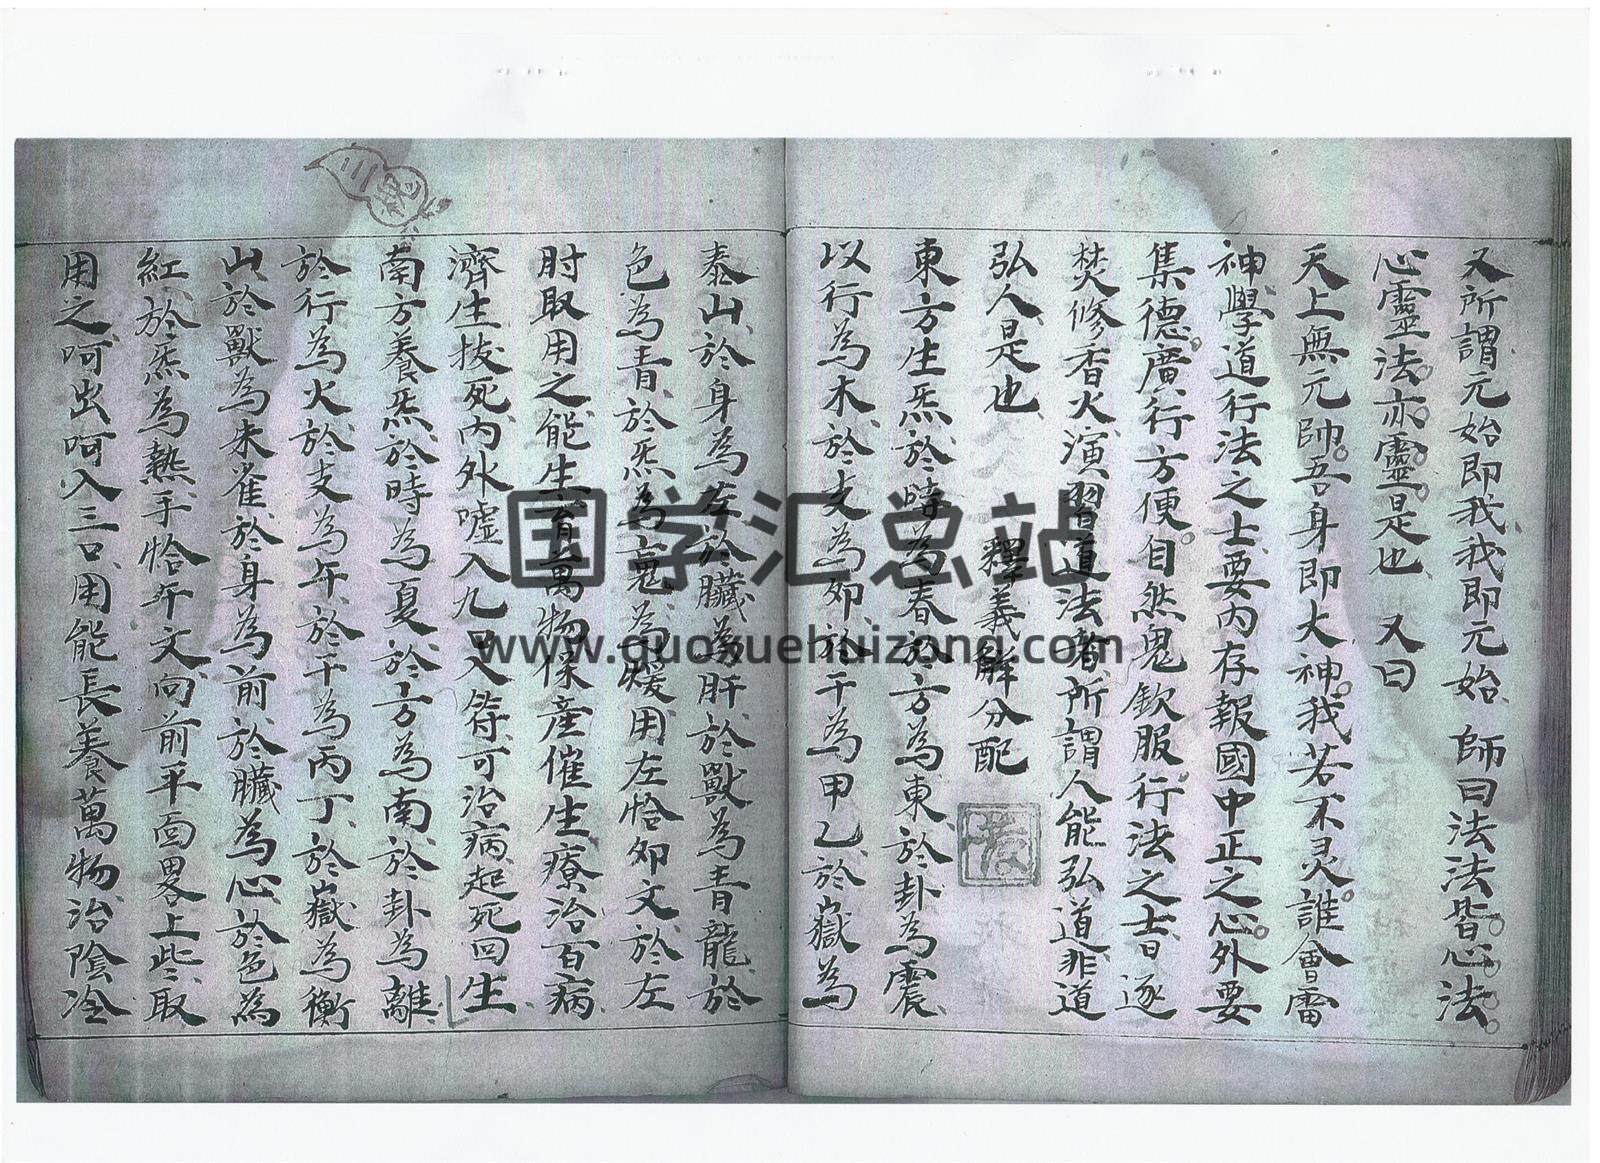 又所謂元始即我我即元始 師曰法法皆心法
心靈法亦靈是也 又曰
天上無元帥吾身即大神我若不灵誰會雷
神學道行法之士要内存報國中正之心外要
集德廣行方便自然鬼欽服行法之士日逐
焚修香火演習道法者所謂人能弘道非道
弘人是也
釋義解分配
東方生炁於時為春於方為東於卦為震
以行為木於支為卯於干為甲乙於嶽為
泰山於身為左於臟為肝於獸為青龍於
色為青於炁為 為煖用左恰卯文於左
肘取用之能生育萬物保産催生療治百病
濟生拔死内外嘘入九口入符可治病起死回生
南方養炁於時為夏於方為南於卦為離
於行為火於支為午於干為丙丁於嶽為衡
山於獸為朱雀於身為前於臟為心於色為
紅於炁為熱手恰午文向前平面畧上些取
用之呵出呵入三口用能長養萬物治陰冷
国学汇总站
www.guoxuehuizong.com